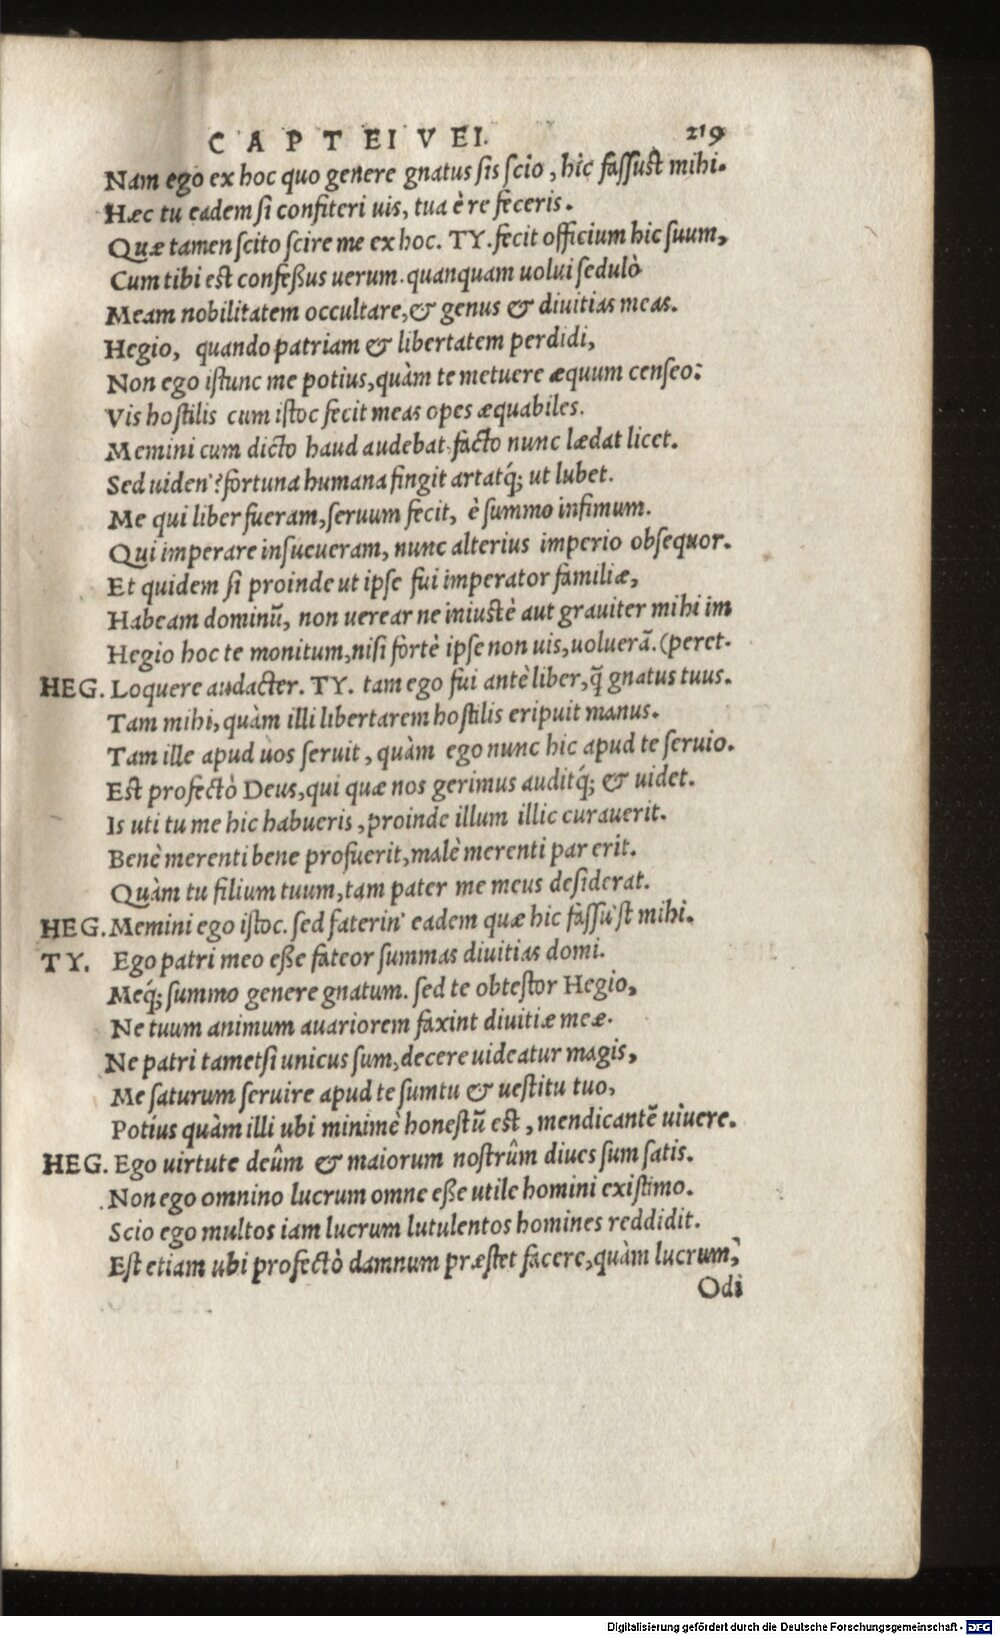 CAPTEIVEI. 219
Nam ego ex hoc quo genere gnatus sis scio, hic fassust mihi.
Hæc tu eadem si confiteri uis, tua è re feceris.
Quæ tamen scito scire me ex hoc. TY. fecit officium hic suum,
Cum tibi est confeßus uerum. quanquam uolui sedulò
Meam nobilitatem occultare, & genus & diuitias meas.
Hegio, quando patriam & libertatem perdidi,
Non ego istunc me potius, quàm te metuere æquum censeo:
Vis hostilis cum istoc fecit meas opes æquabiles.
Memini cum dicto haud audebat. facto nunc lædat licet.
Sed uiden'? fortuna humana fingit artatq́; ut lubet.
Me qui liber fueram, seruum fecit, è summo infimum.
Qui imperare insueueram, nunc alterius imperio obsequor.
Et quidem si proinde ut ipse fui imperator familiæ,
Habeam dominũ, non uerear ne iniustè aut grauiter mihi im
Hegio hoc te monitum, nisi fortè ipse non uis, uoluerã. (peret.
HEG. Loquere audacter. TY. tam ego fui antè liber, q̃ gnatus tuus.
Tam mihi, quàm illi libertarem hostilis eripuit manus.
Tam ille apud uos seruit, quàm ego nunc hic apud te seruio.
Est profectò Deus, qui quæ nos gerimus auditq́; & uidet.
Is uti tu me hic habueris, proinde illum illic curauerit.
Benè merenti bene profuerit, malè merenti par erit.
Quàm tu filium tuum, tam pater me meus desiderat.
HEG. Memini ego istoc. sed faterin' eadem quæ hic fassu'st mihi.
TY. Ego patri meo eße fateor summas diuitias domi.
Meq́; summo genere gnatum. sed te obtestor Hegio,
Ne tuum animum auariorem faxint diuitiæ meæ.
Ne patri tametsi unicus sum, decere uideatur magis,
Me saturum seruire apud te sumtu & uestitu tuo,
Potius quàm illi ubi minimè honestũ est, mendicantẽ uiuere.
HEG. Ego uirtute deûm & maiorum nostrûm diues sum satis.
Non ego omnino lucrum omne eße utile homini existimo.
Scio ego multos iam lucrum lutulentos homines reddidit.
Est etiam ubi profectò damnum præstet facere, quàm lucrum,
Odi
Digitalisierung gefördert durch die Deutsche Forschungsgemeinschaft - DFG